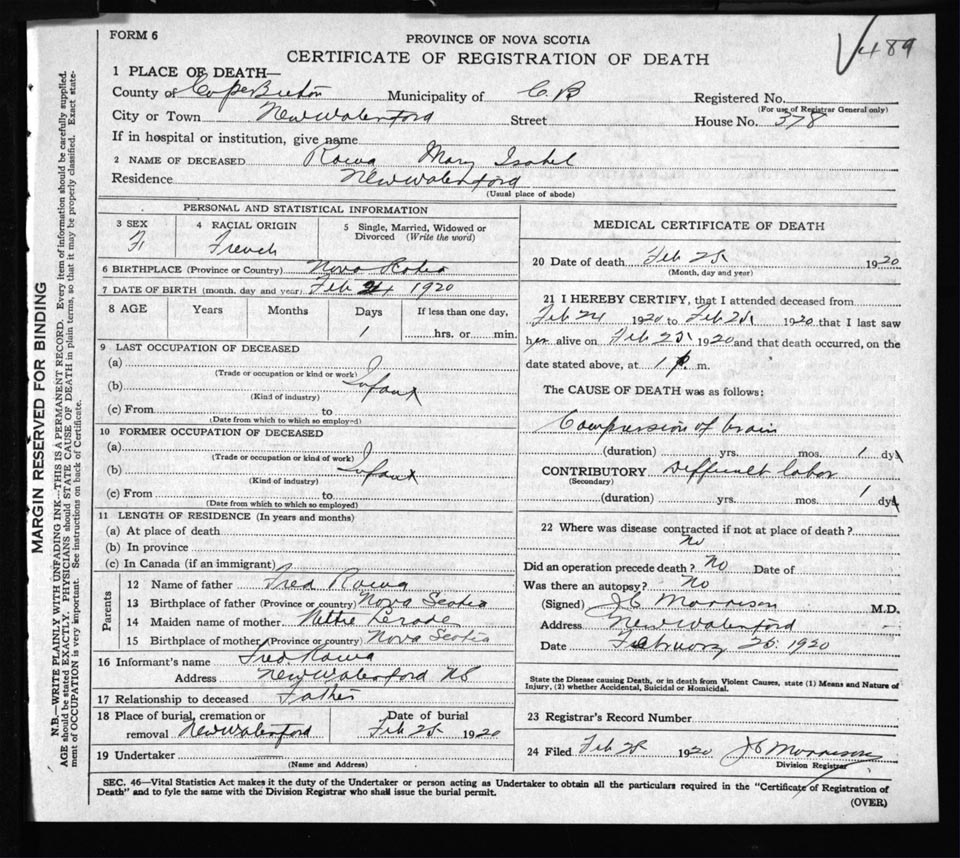 FORM 6
PROVINCE OF NOVA SCOTIA
CERTIFICATE OF REGISTRATION OF DEATH
489
1 PLACE OF DEATH—
County of Cape Breton Municipality of C. B Registered No.
(For use of Registrar General only)
City or Town New Waterford Street House No. 378
If in hospital or institution, give name
2 NAME OF DECEASED Mary Isabel
Residence New Waterford
(Usual place of abode)
PERSONAL AND STATISTICAL INFORMATION
3 SEX
F
4 RACIAL ORIGIN
French
5 Single, Married, Widowed or Divorced (Write the word)
6 BIRTHPLACE (Province or Country) Nova Scotia
7 DATE OF BIRTH (month, day and year) Feb 24 1920
8 AGE Years Months Days If less than one day,
1 hrs. or min.
9 LAST OCCUPATION OF DECEASED
(a)
(Trade or occupation or kind or work)
(b) Infant
(Kind of industry)
(c) From to
(Date from which to which so employed)
10 FORMER OCCUPATION OF DECEASED
(a)
(Trade or occupation or kind of work)
(b) Infant
(Kind of industry)
(c) From to
(Date from which to which so employed)
11 LENGTH OF RESIDENCE (In years and months)
(a) At place of death
(b) In province
(c) In Canada (if an immigrant)
Parents
12 Name of father Fred
13 Birthplace of father (Province or country) Nova Scotia
14 Maiden name of mother
15 Birthplace of mother (Province or country) Nova Scotia
16 Informant's name Fred
Address New Waterford NS
17 Relationship to deceased Father
18 Place of burial, cremation or Date of burial
removal New Waterford Feb 25 1920
19 Undertaker
(Name and Address)
MEDICAL CERTIFICATE OF DEATH
20 Date of death Feb 25 1920
(Month, day and year)
21 I HEREBY CERTIFY, that I attended deceased from
Feb 24 1920 to Feb 25 1920 that I last saw
her alive on Feb 25 1920 and that death occurred, on the
date stated above, at 1 p. m.
The CAUSE OF DEATH was as follows:
Compression of brain
(duration) yrs. mos. 1 dys
CONTRIBUTORY Difficult labor
(Secondary)
(duration) yrs. mos. 1 dys
22 Where was disease contracted if not at place of death?
No
Did an operation precede death? No Date of
Was there an autopsy? No
(Signed) J C Morrison M.D.
Address New Waterford
Date February 25 1920
State the Disease causing Death, or in death from Violent Causes, state (1) Means and Nature of
Injury, (2) whether Accidental, Suicidal or Homicidal.
23 Registrar's Record Number
24 Filed Feb 25 1920 J C Morrison
Division Registrar
SEC. 46—Vital Statistics Act makes it the duty of the Undertaker or person acting as Undertaker to obtain all the particulars required in the "Certificate of Registration of
Death" and to fyle the same with the Division Registrar who shall issue the burial permit.
(OVER)
MARGIN RESERVED FOR BINDING
N.B.—WRITE PLAINLY WITH UNFADING INK—THIS IS A PERMANENT RECORD. Every item of information should be carefully supplied.
AGE should be stated EXACTLY. PHYSICIANS should STATE CAUSE OF DEATH in plain terms, so that it may be properly classified. Exact state-
ment of OCCUPATION is very important. See instructions on back of Certificate.